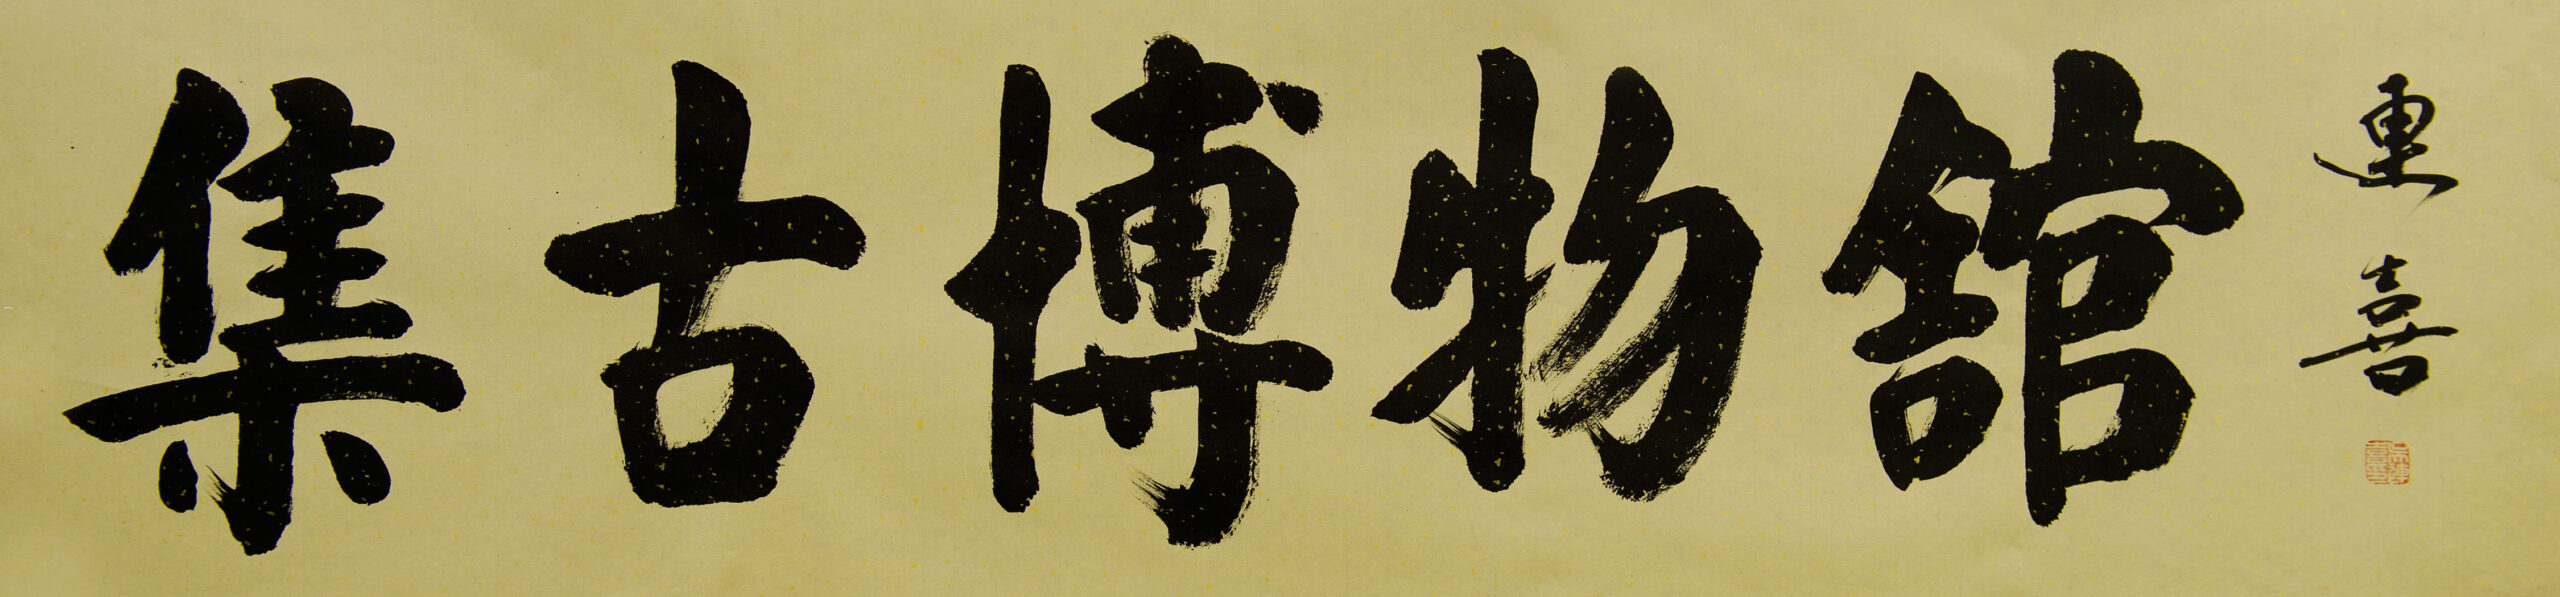 集古博物舘
連喜